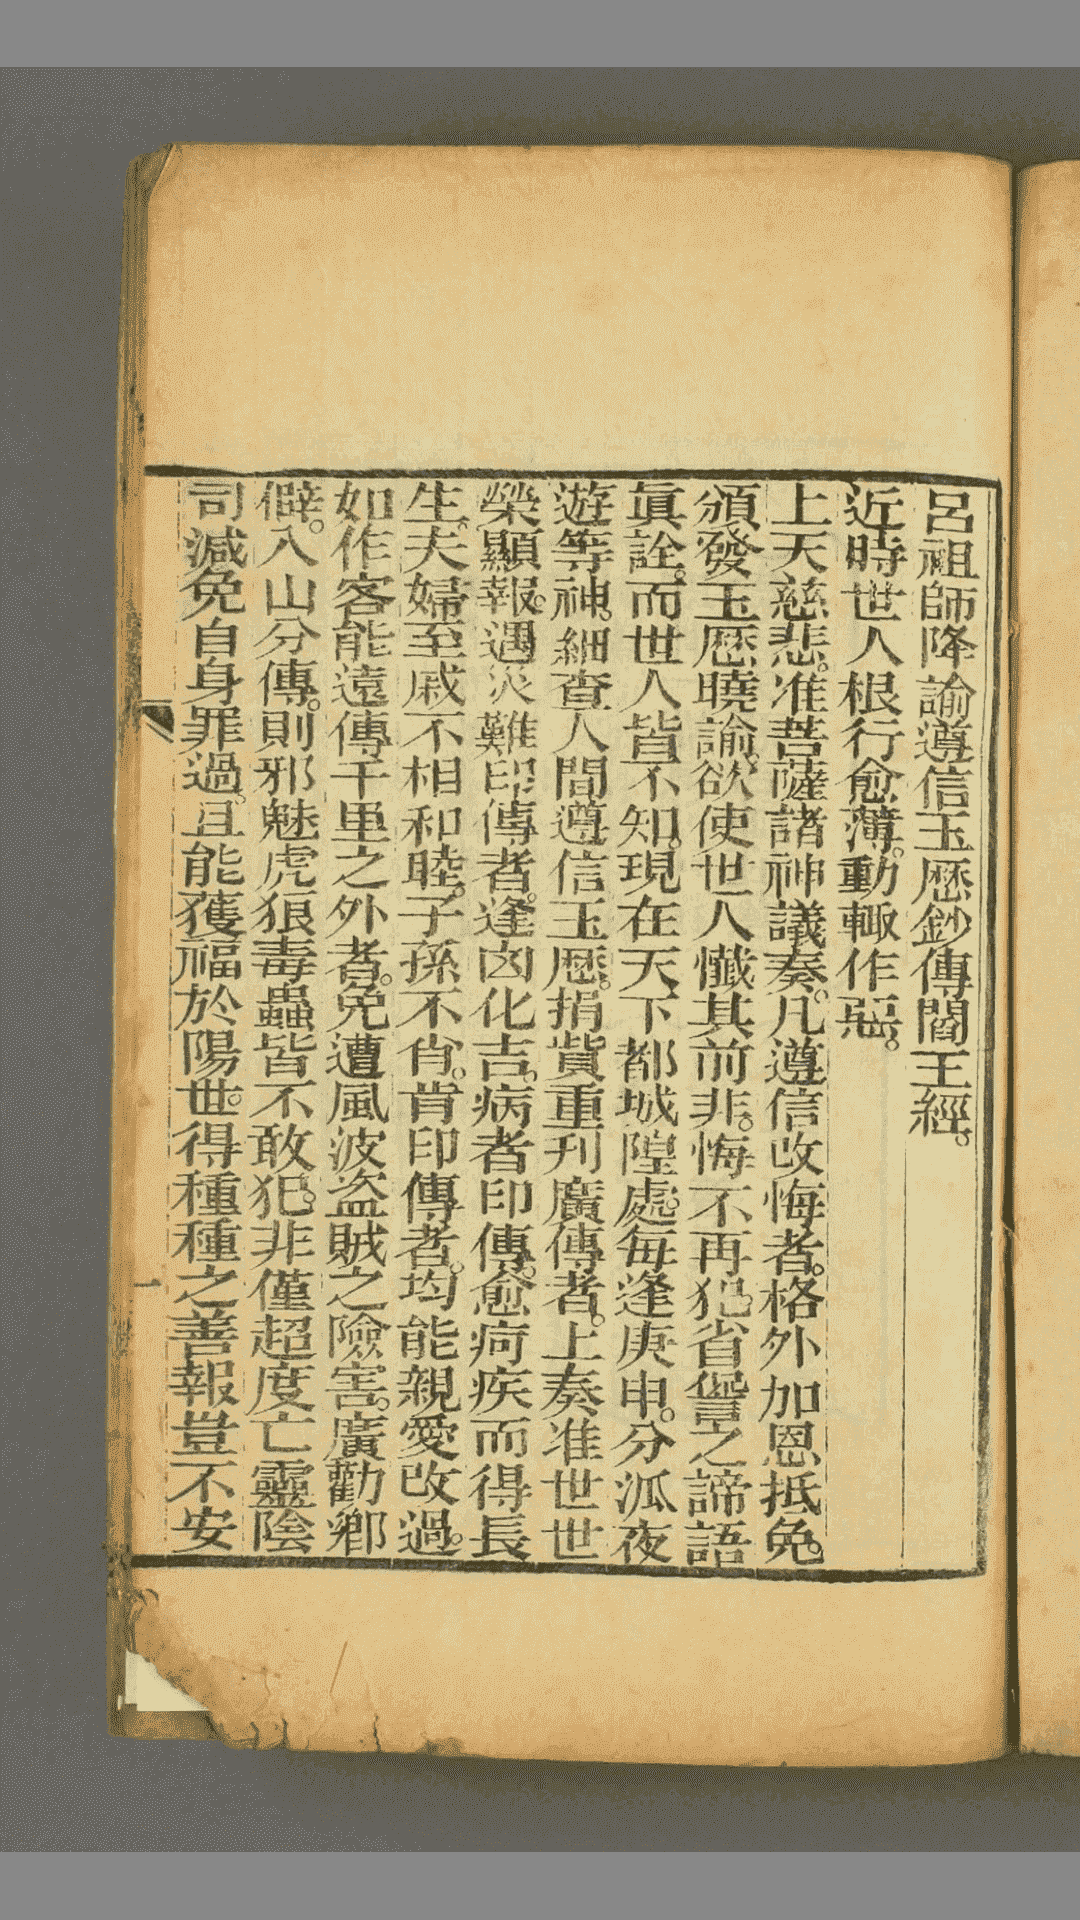 呂祖師降諭遵信玉厯鈔傳閻王經。
近時世人根行愈薄。動輙作惡。
上天慈悲。准菩薩諸神議奏。凡遵信改悔者。格外加恩抵免。
頒發玉厯曉諭。欲使世人懺其前非。悔不再犯。省豋之諦語
眞詮。而世人皆不知。現在天下都城隍處。每逢庚申。分泒夜
遊等神。細查人間遵信玉厯。捐貲重刋廣傳者。上奏准世世
榮顯報。遇災難印傳者。逢凶化吉。病者印傳。愈疴疾而得長
生。夫婦至戚不相和睦。子孫不肖。肯印傳者。均能親愛改過。
如作客能遠傳千里之外者。免遭風波盗賊之險害。廣勸鄉
僻。入山分傳。則邪魅虎狼毒蟲皆不敢犯。非僅超度亡靈陰
司減免自身罪過。且能獲福於陽世。得種種之善報豈不安
一